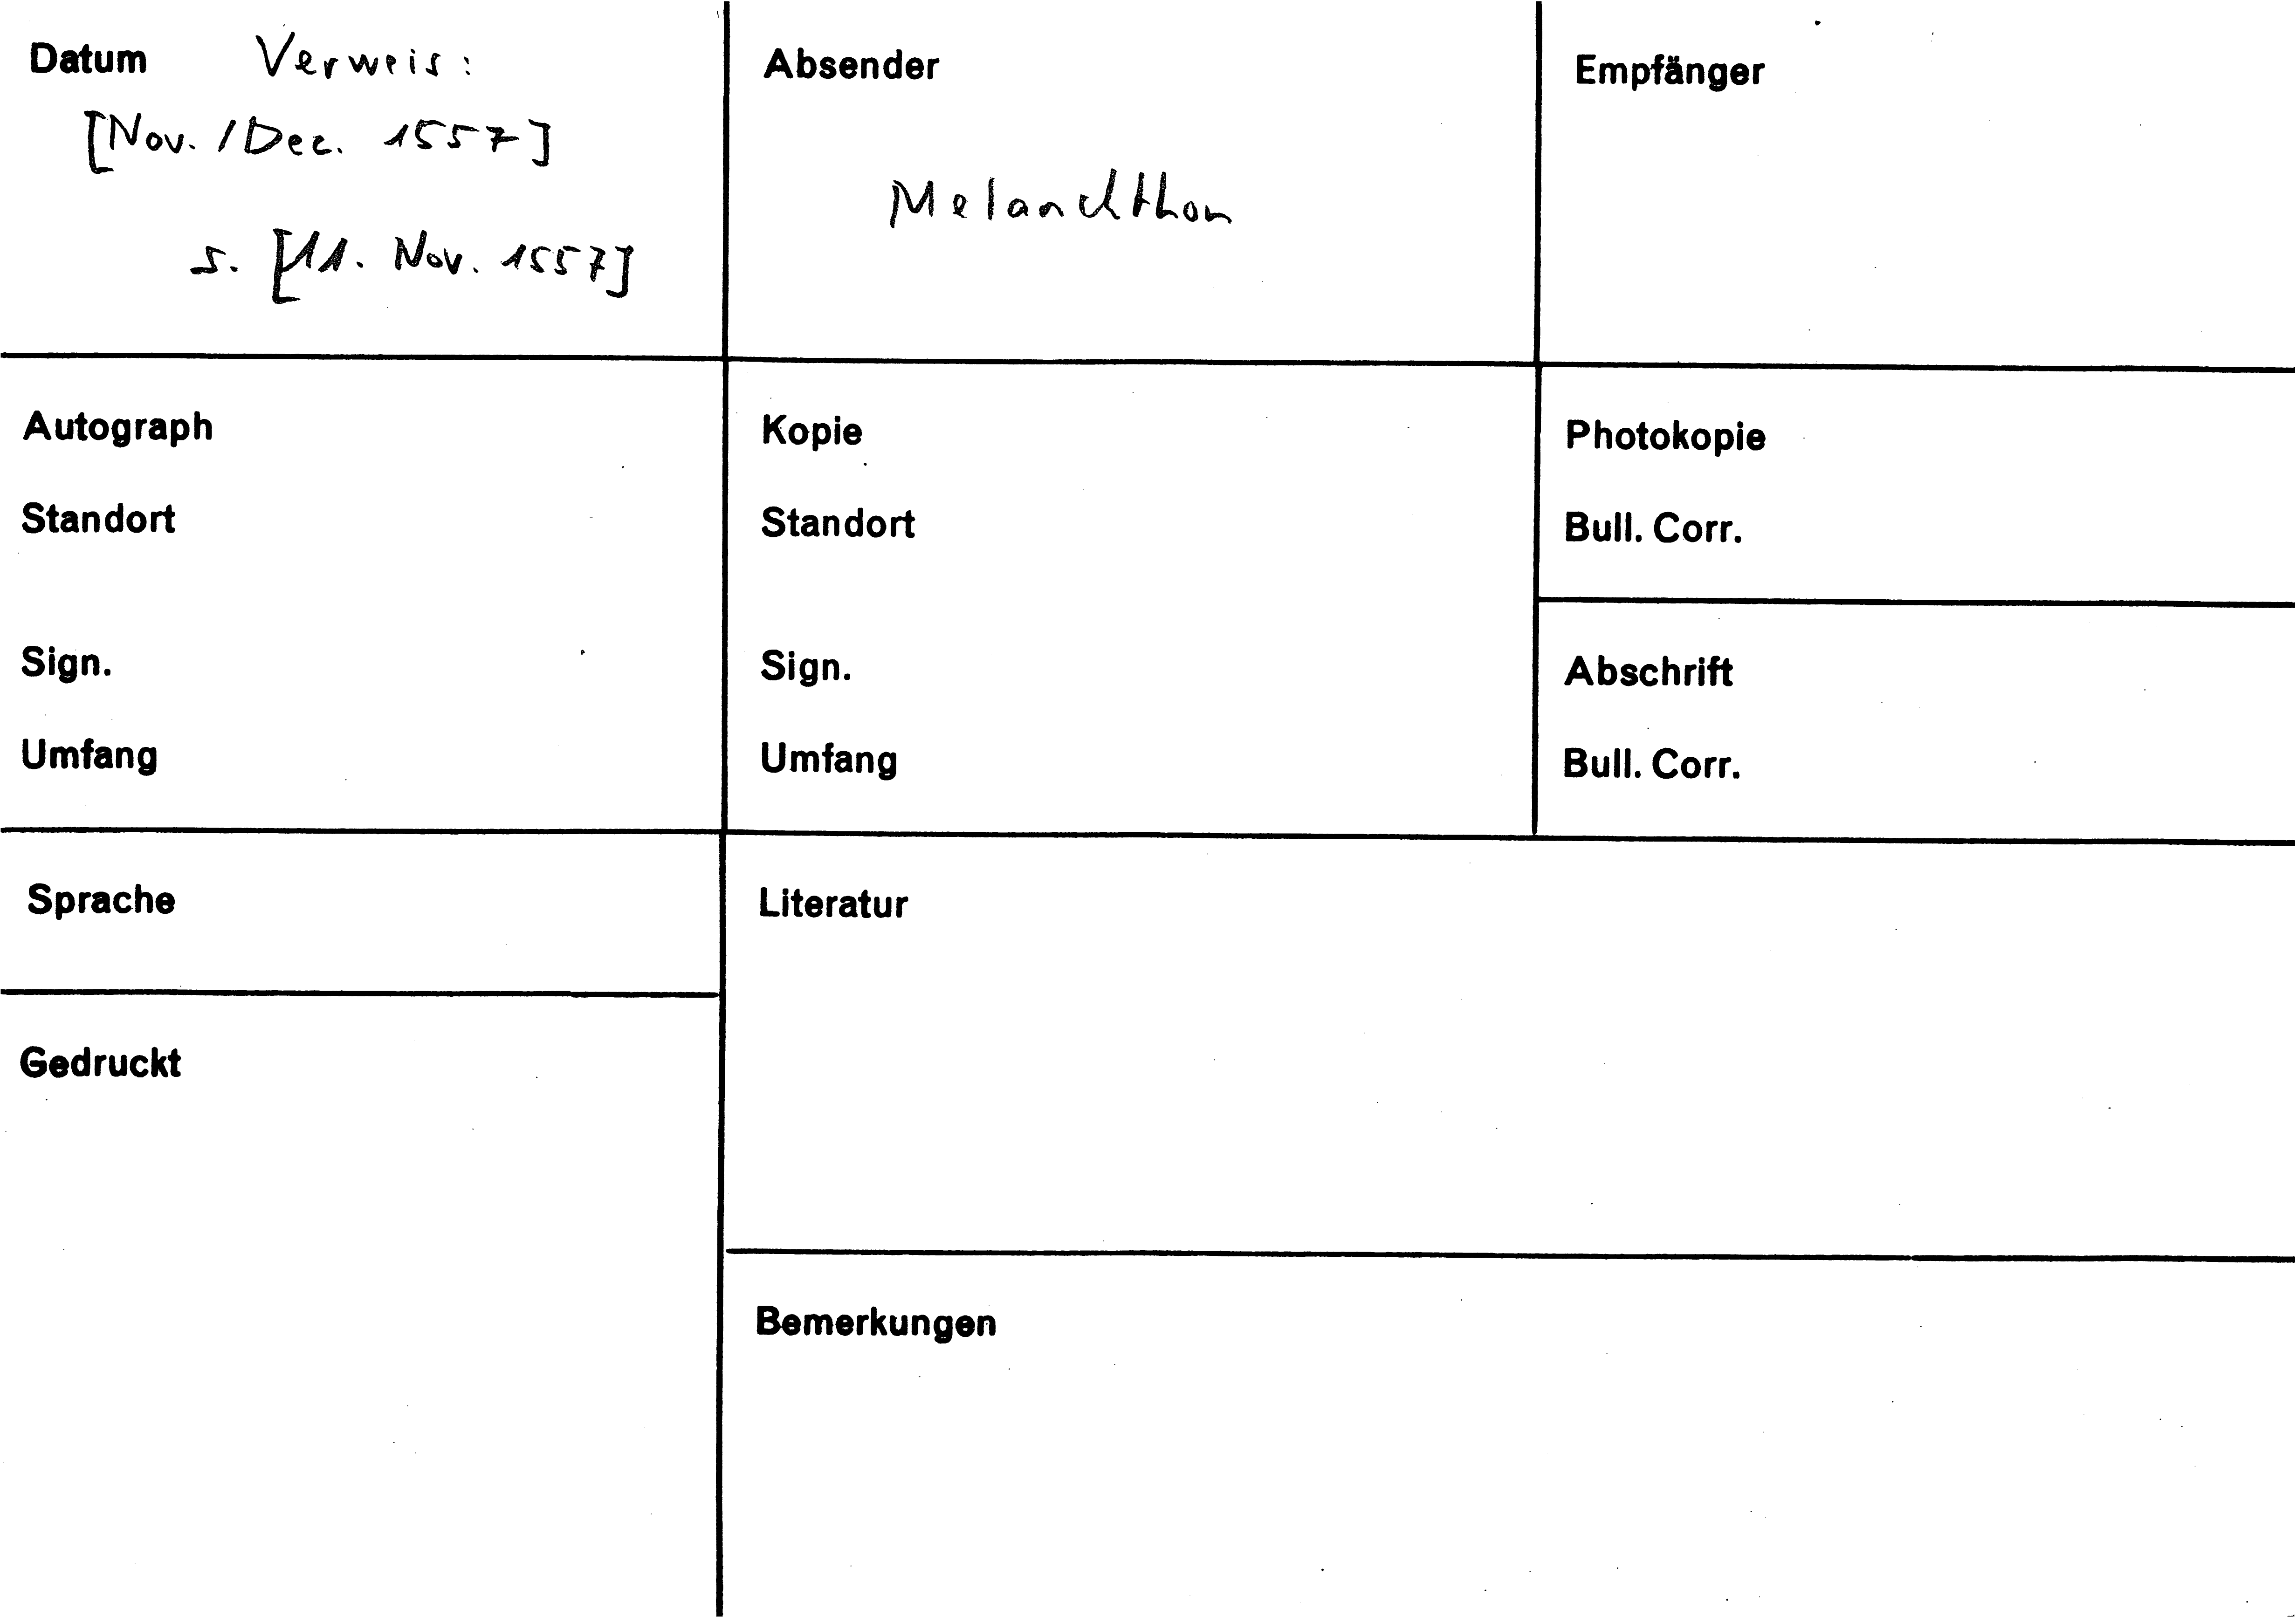 Datum Verweis:
[Nov. / Dec. 1557]
s. [11. Nov. 1557]
Absender
Melanchthon
Empfänger
Autograph
Standort
Sign.
Umfang
Kopie
Standort
Sign.
Umfang
Photokopie
Bull. Corr.
Abschrift
Bull. Corr.
Sprache
Gedruckt
Literatur
Bemerkungen